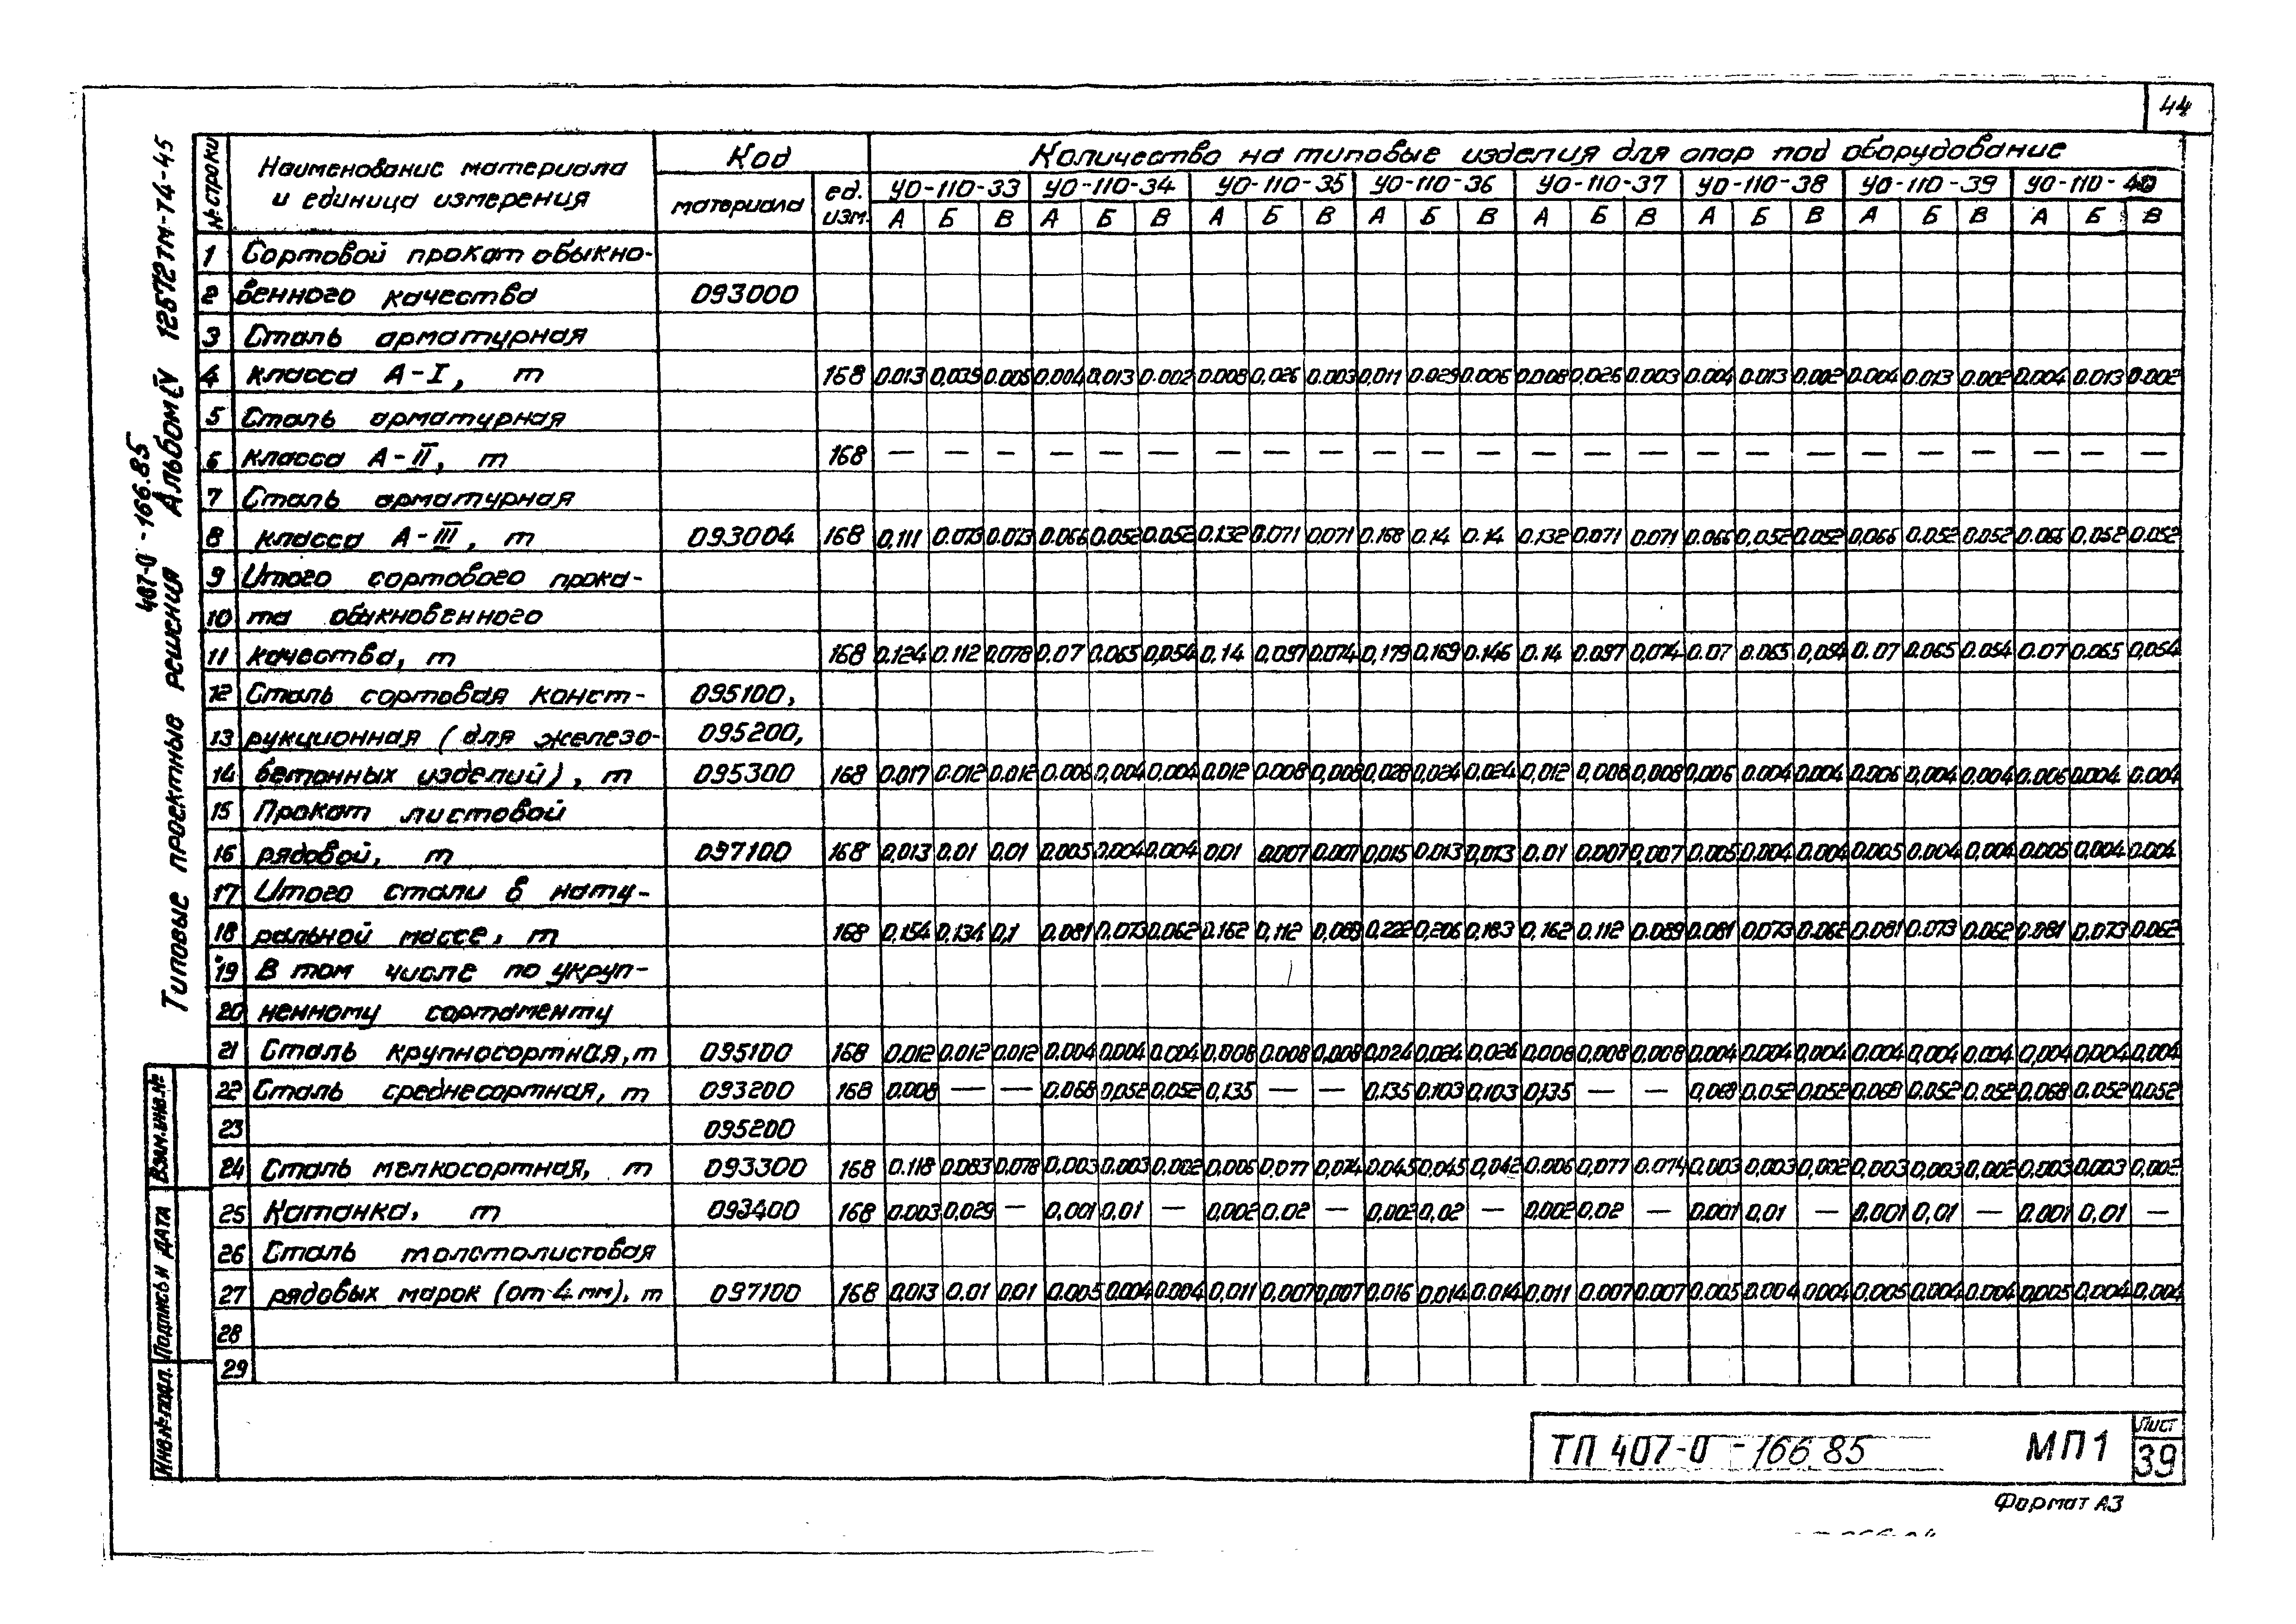 44
Типовые проектные решения Альбом IV 12572тм-Т4-45
407-0-166.85
№ строки Наименование материала и единица измерения Код Количество на типовые изделия для опор под оборудование
материала ед. изм. УО-110-33 УО-110-34 УО-110-35 УО-110-36 УО-110-37 УО-110-38 УО-110-39 УО-110-40
А Б В А Б В А Б В А Б В А Б В А Б В А Б В А Б В
1 Сортовой прокат обыкно-
2 венного качества 093000
3 Сталь арматурная
4 класса А-I, т 168 0.013 0,039 0.005 0.004 0.013 0.002 0.008 0,026 0.003 0,011 0.029 0.006 0.008 0,026 0.003 0.004 0.013 0.002 0.004 0.013 0.002 0.004 0.013 0.002
5 Сталь арматурная
6 класса А-II, т 168 — — — — — — — — — — — — — — — — — — — — — — — —
7 Сталь арматурная
8 класса А-III, т 093004 168 0,111 0.073 0.073 0.066 0.052 0.052 0.132 0.071 0,071 0.168 0.14 0.14 0,132 0.071 0.071 0.066 0,052 0.052 0,066 0.052 0.052 0.066 0,052 0.052
9 Итого сортового прока-
10 та обыкновенного
11 качества, т 168 0.124 0.112 0.078 0.07 0.065 0,054 0.14 0,097 0.074 0,179 0,169 0.146 0.14 0.097 0,074 0.07 0.065 0,054 0.07 0.065 0.054 0.07 0.065 0,054
12 Сталь сортовая конст- 095100,
13 рукционная (для железо- 095200,
14 бетонных изделий), т 095300 168 0.017 0.012 0.012 0.006 0,004 0.004 0.012 0.008 0,008 0,028 0,024 0,024 0,012 0,008 0,008 0,006 0.004 0.004 0.006 0,004 0.004 0.006 0.004 0.004
15 Прокат листовой
16 рядовой, т 097100 168 0,013 0.01 0.01 0.005 0.004 0.004 0.01 0.007 0.007 0,015 0,013 0,013 0.01 0.007 0,007 0.005 0.004 0.004 0.005 0.004 0,004 0.005 0,004 0.004
17 Итого стали в нату-
18 ральной массе, т 168 0,154 0,134 0,1 0,081 0,073 0.062 0.162 0,112 0,089 0,222 0,206 0,183 0,162 0.112 0.089 0.081 0,073 0.062 0.081 0.073 0.062 0.081 0,073 0.062
19 В том числе по укруп-
20 ненному сортаменту
21 Сталь крупносортная, т 095100 168 0.012 0.012 0,012 0.004 0.004 0.004 0,008 0.008 0,008 0,024 0.024 0.024 0.008 0,008 0.008 0.004 0.004 0,004 0.004 0,004 0.004 0,004 0,004 0,004
22 Сталь среднесортная, т 093200 168 0.008 — — 0.068 0,052 0,052 0,135 — — 0,135 0,103 0,103 0,135 — — 0,068 0.052 0.052 0,068 0.052 0.052 0.068 0.052 0.052
23 095200
24 Сталь мелкосортная, т 093300 168 0.118 0.083 0.078 0,003 0.003 0.002 0.006 0,077 0,074 0.045 0.045 0,042 0.006 0,077 0.074 0.003 0,003 0,002 0,003 0,003 0,002 0.003 0.003 0,002
25 Катанка, т 093400 168 0.003 0,029 — 0,001 0.01 — 0,002 0.02 — 0,002 0,02 — 0.002 0.02 — 0.001 0,01 — 0.001 0,01 — 0.001 0,01 —
26 Сталь толстолистовая
27 рядовых марок (от 4 мм), т 097100 168 0,013 0.01 0,01 0.005 0.004 0.004 0,011 0,007 0,007 0.016 0,014 0.014 0.011 0.007 0.007 0.005 0.004 0.004 0,005 0.004 0.004 0,005 0,004 0,004
28
29
Взам.инв.№
Подпись и дата
Инв.№ подл.
ТП 407-0-166.85 МП1 Лист 39
Формат А3